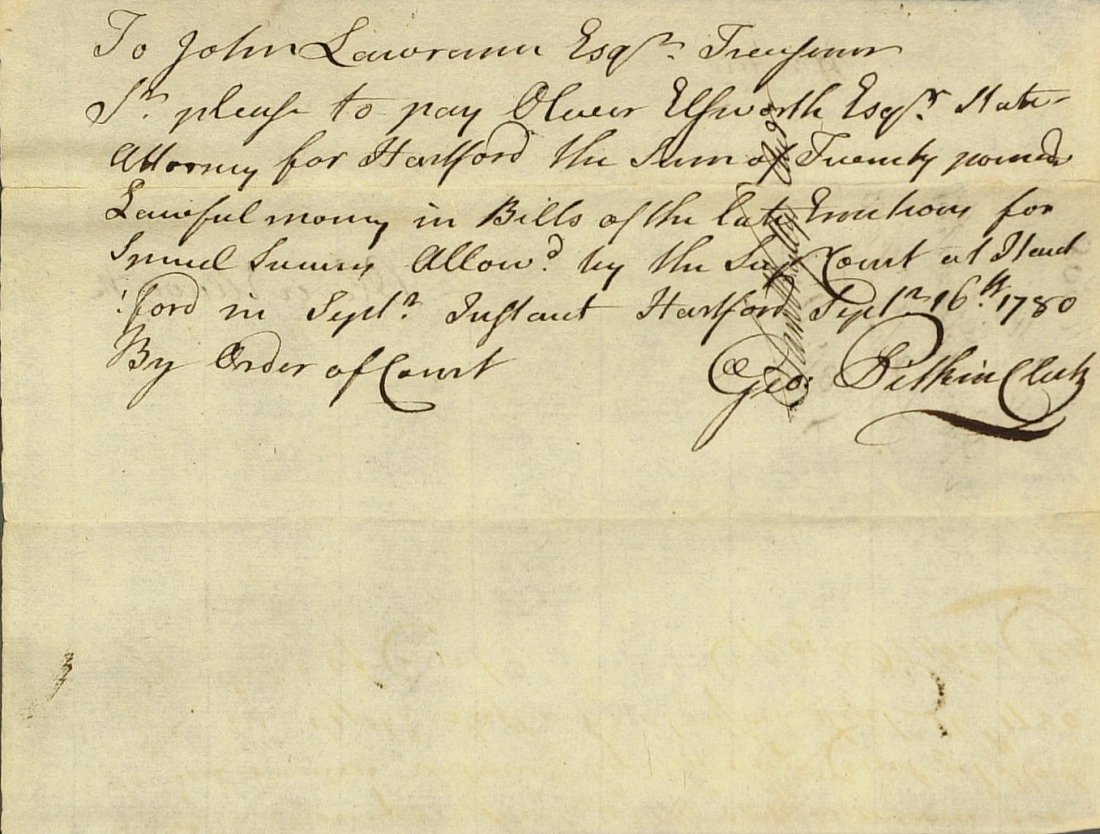 To John Lawrance Esqr. Treasurer
Sr. please to pay Oliver Elsworth Esqr. State
Attorney for Hartford the Sum of Twenty pounds
Lawful money in Bills of the late Emitions for
Allowd. by the Sup Court at Hart
ford in Septr. Instant Hartford Septr. 16th. 1780
By Order of Court
Geo: Pitkin Clerk